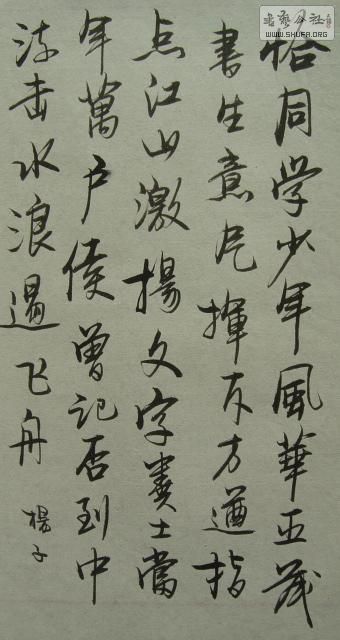 恰同学少年風華正茂
書生意气揮斥方遒指
点江山激揚文字糞土當
年萬户侯曾记否到中
流击水浪遏飞舟
楊子
WWW.SHUFA.ORG